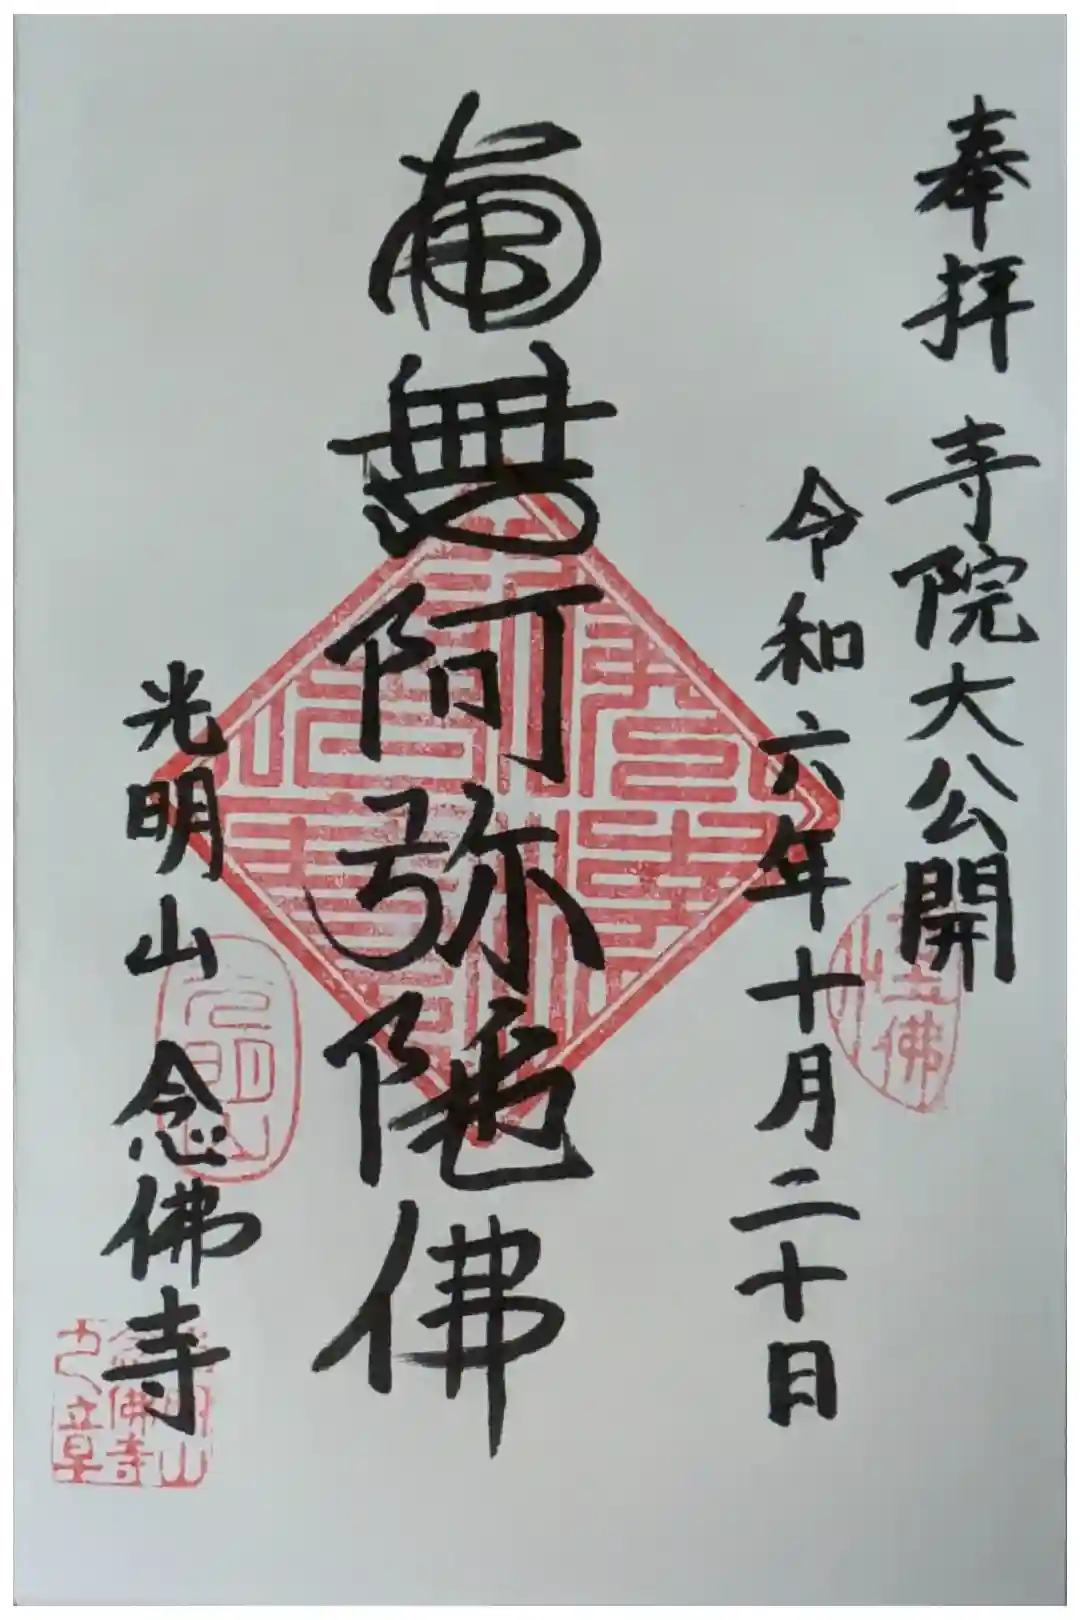 奉拝 寺院大公開
令和六年十月二十日
南無阿弥陀佛
光明山 念佛寺
光明山
念佛寺
之章